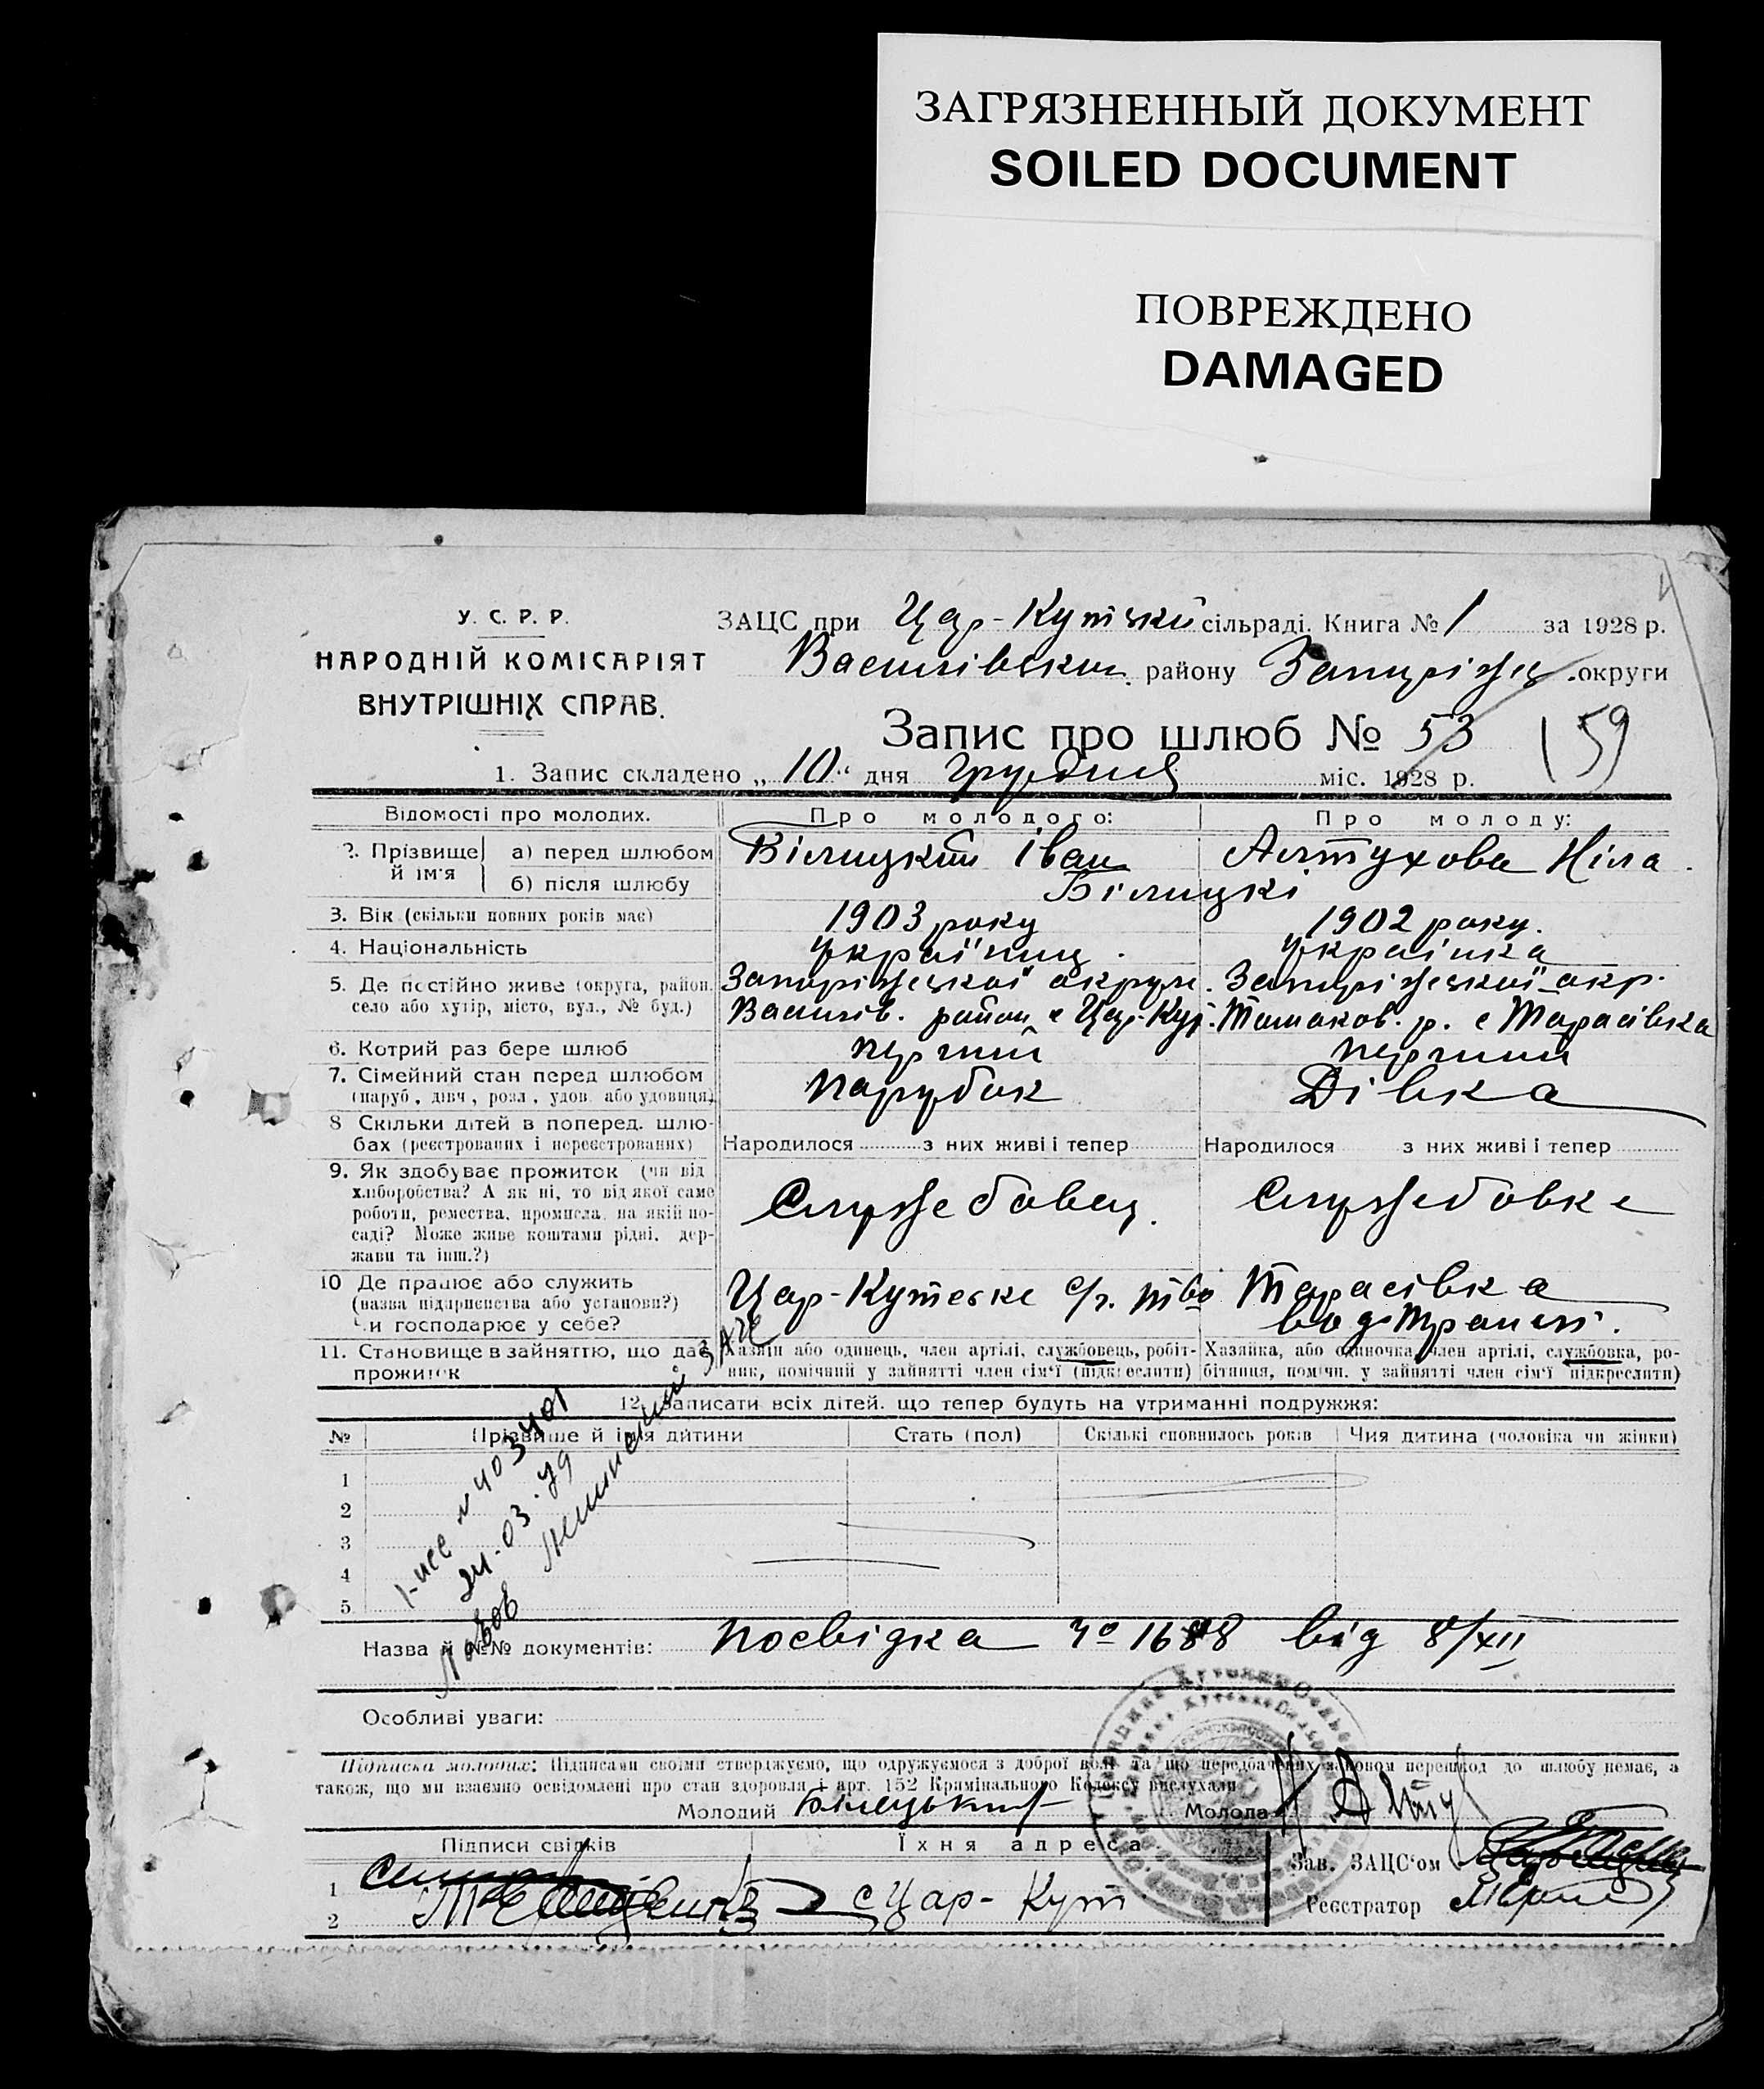 ЗАГРЯЗНЕННЫЙ ДОКУМЕНТ
SOILED DOCUMENT
ПОВРЕЖДЕНО
DAMAGED
У. С. Р. Р.
НАРОДНІЙ КОМІСАРІЯТ
ВНУТРІШНІХ СПРАВ.
ЗАЦС при Цар-Кутській сільраді. Книга № 1 за 1928 р.
Василівськ. району Запоріжц. округи
Запис про шлюб № 53 59
1. Запис складено „10“ дня грудня міс. 1928 р.
Відомості про молодих. Про молодого: Про молоду:
2. Прізвище й ім'я а) перед шлюбом Білицкий Іван Алтухова Ніла
б) після шлюбу Білицкі
3. Вік (скільки повних років має) 1903 року 1902 року.
4. Національність Українець Українка
5. Де постійно живе (округа, район, Запоріжської округи. Запоріжської окр.
село або хутір, місто, вул., № буд.) Василів. район с Цар-Кут. Томаков. р. с Тарасівка
6. Котрий раз бере шлюб перший перший
7. Сімейний стан перед шлюбом Парубок Дівка
(паруб., дівч., розл., удов. або удовиця)
8 Скільки дітей в поперед. шлю-
бах (реєстрованих і нереєстрованих) Народилося з них живі і тепер Народилося з них живі і тепер
9. Як здобуває прожиток (чи від
хліборобства? А як ні, то від якої саме
роботи, ремества, промисла, на якій по- Служебовец. Служебовка
саді? Може живе коштами рідні, дер-
жави та інш.?)
10 Де працює або служить Цар-Кутське с/г. тво Тарасівка
(назва підприємства або установи?)
Чи господарює у себе?
11. Становище в зайняттю, що дає Хазяїн або одинець, член артілі, службовець, робіт- Хазяйка, або одиночка, член артілі, службовка, ро-
прожиток ник, помічний у зайнятті член сім'ї (підкреслити) бітниця, помічн. у зайнятті член сім'ї підкреслити)
12. Записати всіх дітей, що тепер будуть на утриманні подружжя:
№ Прізвище й ім'я дитини Стать (пол) Скількі сповнилось років Чия дитина (чоловіка чи жінки)
1
2
3
4
5
N 403401
24.03.79
Назва й №№ документів: посвідка № 1688 від 8/XII
Особливі уваги:
Підписка молодих: Підписами своїми стверджуємо, що одружуємося з доброї волі та що передбачених законом перешкод до шлюбу немає, а
також, що ми взаємно освідомлені про стан здоровля і арт. 152 Кримінального Кодексу вислухали
Молодий Білецький Молода
Підписи свідків Їхня адреса Зав. ЗАЦС'ом
1
2 с Цар-Кут Реєстратор